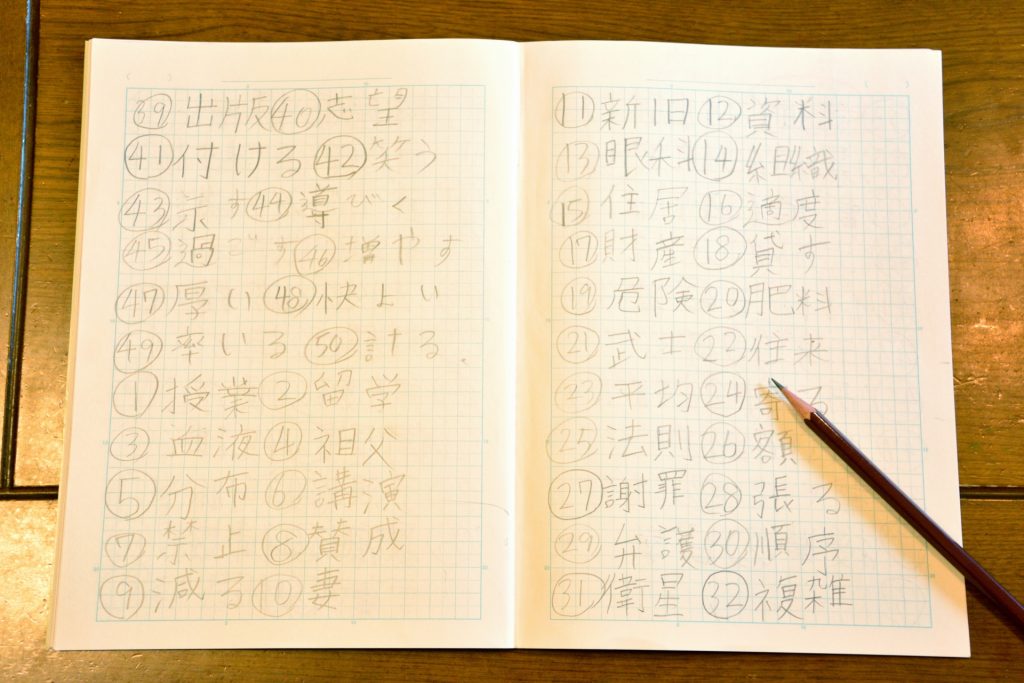 ㊴出版㊵志望
㊶付ける㊷笑う
㊸示す㊹導びく
㊺過ごす㊻増やす
㊼厚い㊽快よい
㊾率いる㊿計る
①授業②留学
③血液④祖父
⑤分布⑥講演
⑦禁止⑧賛成
⑨減る⑩妻
⑪新旧⑫資料
⑬眼科⑭組織
⑮住居⑯適度
⑰財産⑱貸す
⑲危険⑳肥料
㉑武士㉒往来
㉓平均㉔寄る
㉕法則㉖額
㉗謝罪㉘張る
㉙弁護㉚順序
㉛衛星㉜複雑